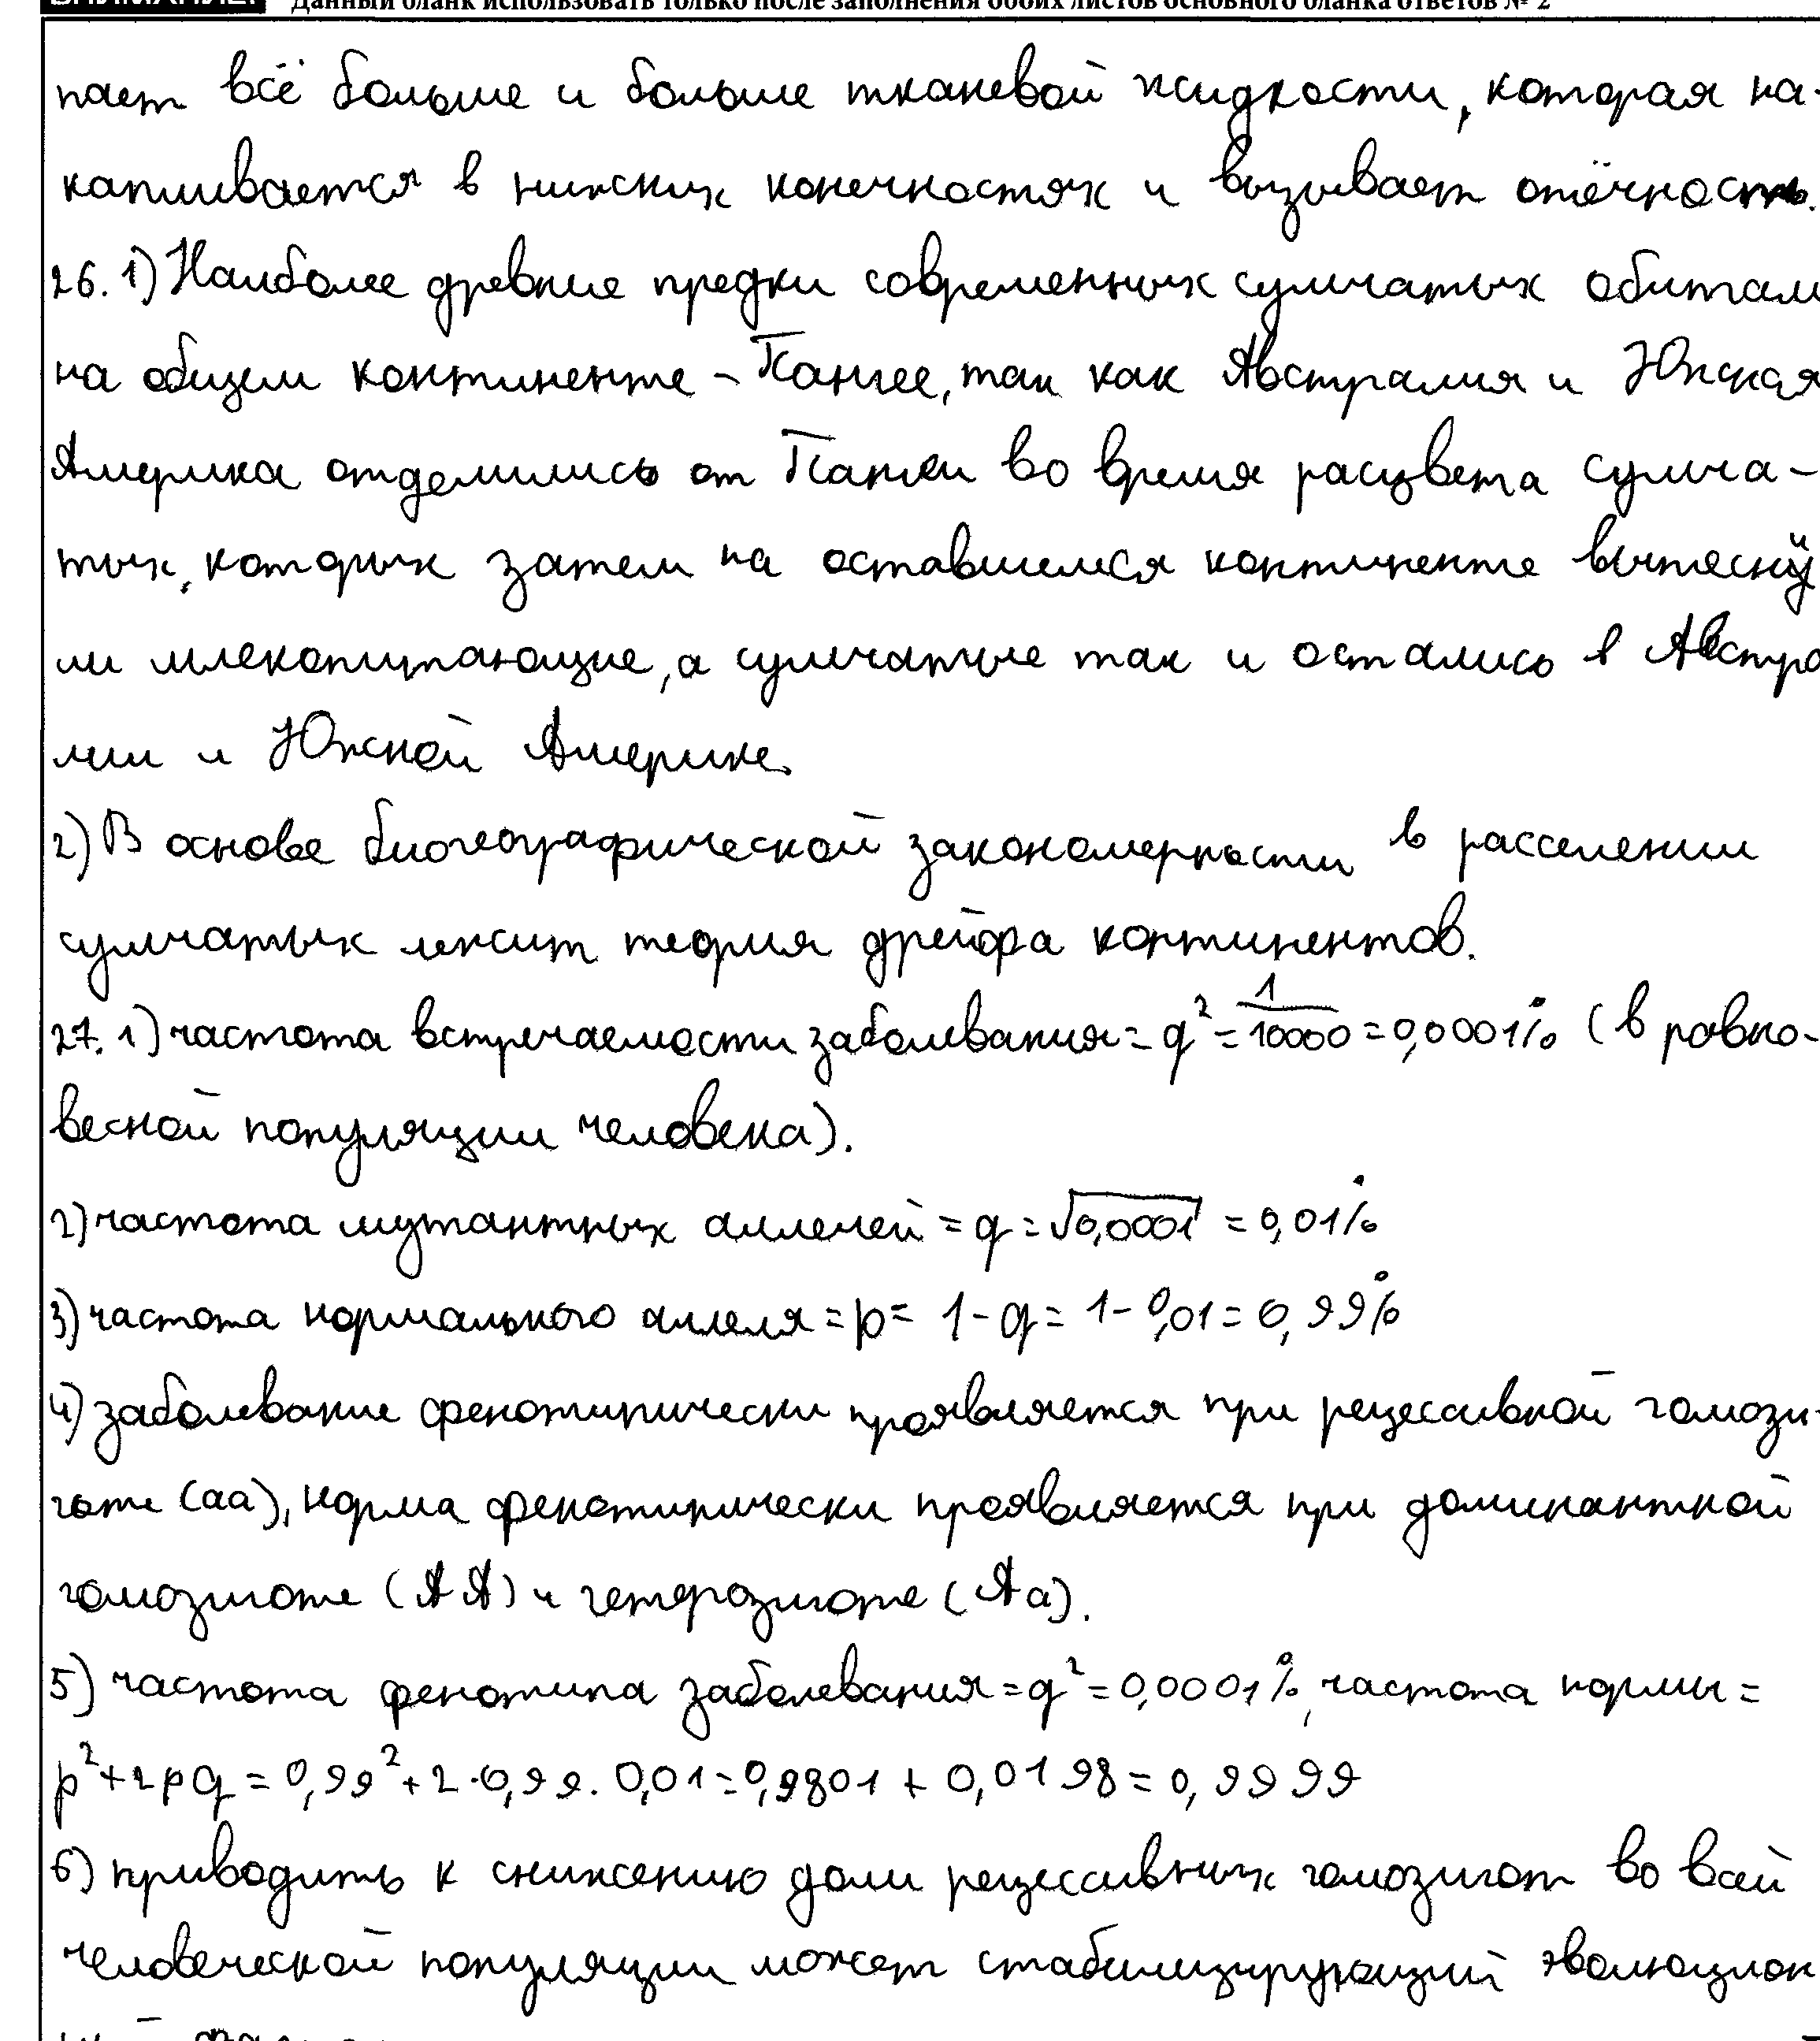 ВНИМАНИЕ! Данный бланк использовать только после заполнения обоих листов основного бланка ответов № 2
пает всё больше и больше тканевой жидкости, которая на-
капливается в нижних конечностях и вызывает отёчность.
26. 1) Наиболее древние предки современных сумчатых обитали
на общем континенте - Пангее, так как Австралия и Южная
Америка отделились от Пангеи во время расцвета сумча-
тых, которых затем на оставшемся континенте вытесни
ли млекопитающие, а сумчатые так и остались в Австра
лии и Южной Америке.
2) В основе биогеографической закономерности в расселении
сумчатых лежит теория дрейфа континентов.
27. 1) частота встречаемости заболевания = q² = 1/10000 = 0,0001% (в равно-
весной популяции человека).
2) частота мутантных аллелей = q = √0,0001 = 0,01%
3) частота нормального аллеля = p = 1 - q = 1 - 0,01 = 0,99%
4) заболевание фенотипически проявляется при рецессивной гомози-
готе (aa), норма фенотипически проявляется при доминантной
гомозиготе (AA) и гетерозиготе (Aa).
5) частота фенотипа заболевания = q² = 0,0001%, частота нормы =
p² + 2pq = 0,99² + 2 · 0,99 · 0,01 = 0,9801 + 0,0198 = 0,9999
6) приводить к снижению доли рецессивных гомозигот во всей
человеческой популяции может стабилизирующий эволюцион